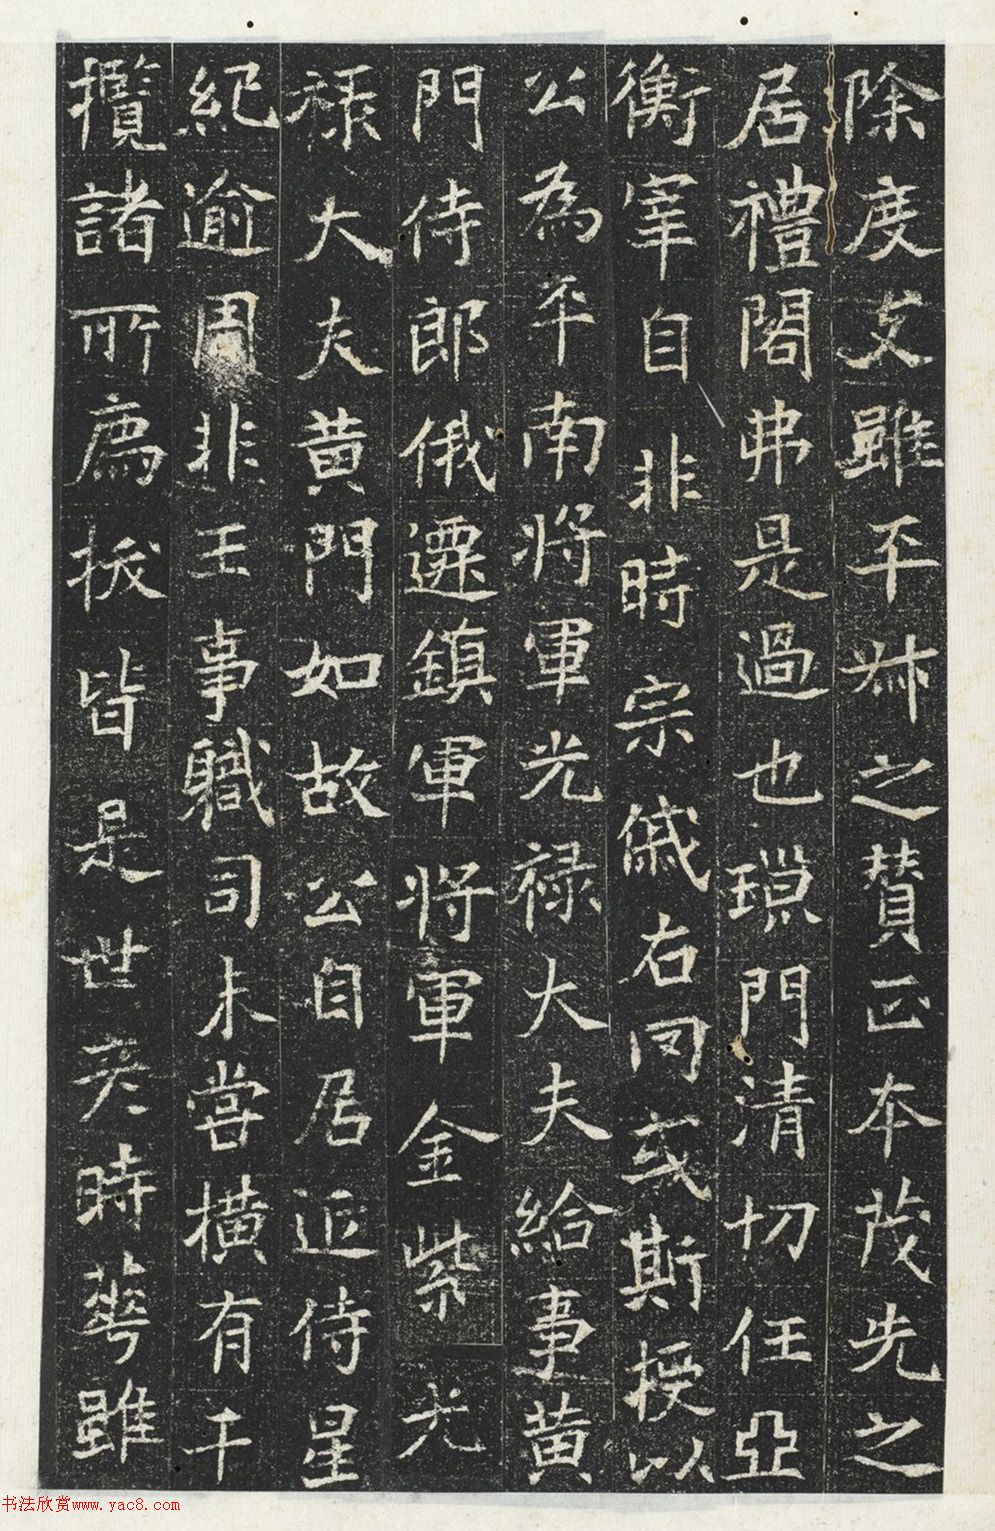 除度支雖平叔之贊正本茂先之
居禮閣弗是過也璅門清切任亞
衡宰自非時宗戚右罔或斯授以
公為平南將軍光祿大夫給事黃
門侍郎俄遷鎮軍將軍金紫光
祿大夫黃門如故公自居近侍星
紀逾周非王事職司未嘗橫有干
攬諸所薦拔皆是世彥時華雖
书法欣赏www.yac8.com